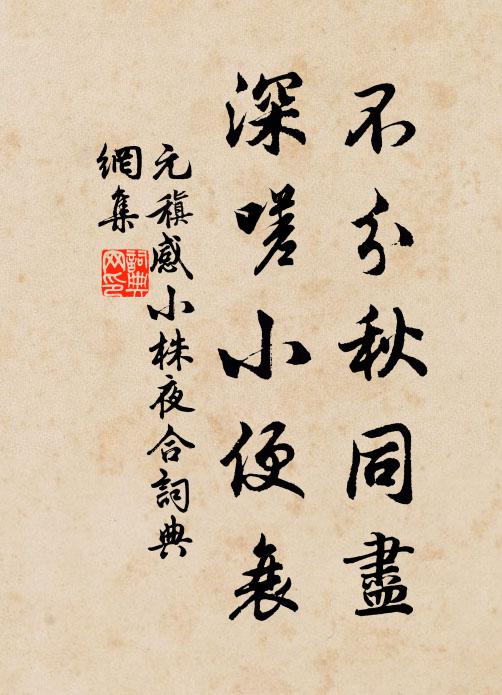 不分秋同盡
深嗟小便衰
元稹感小株夜合詞典
網集
詞典网印